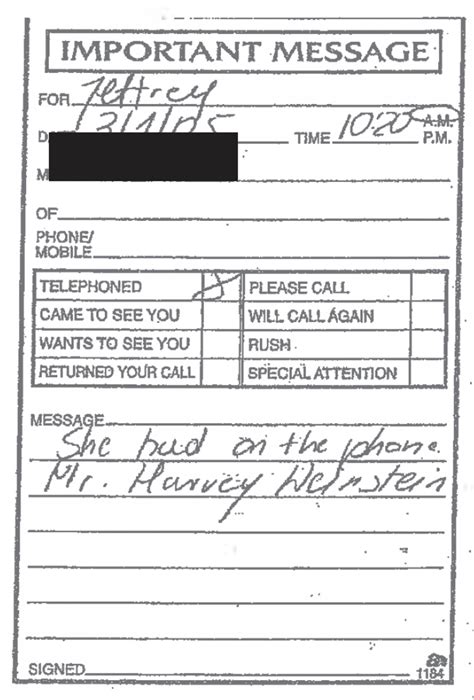 IMPORTANT MESSAGE
FOR Jeffrey
3/1/05 TIME 10:20 A.M.
P.M.
M
OF
PHONE/
MOBILE
TELEPHONED PLEASE CALL
CAME TO SEE YOU WILL CALL AGAIN
WANTS TO SEE YOU RUSH
RETURNED YOUR CALL SPECIAL ATTENTION
MESSAGE
She had on the phone
Mr. Harvey Weinstein
SIGNED
1184